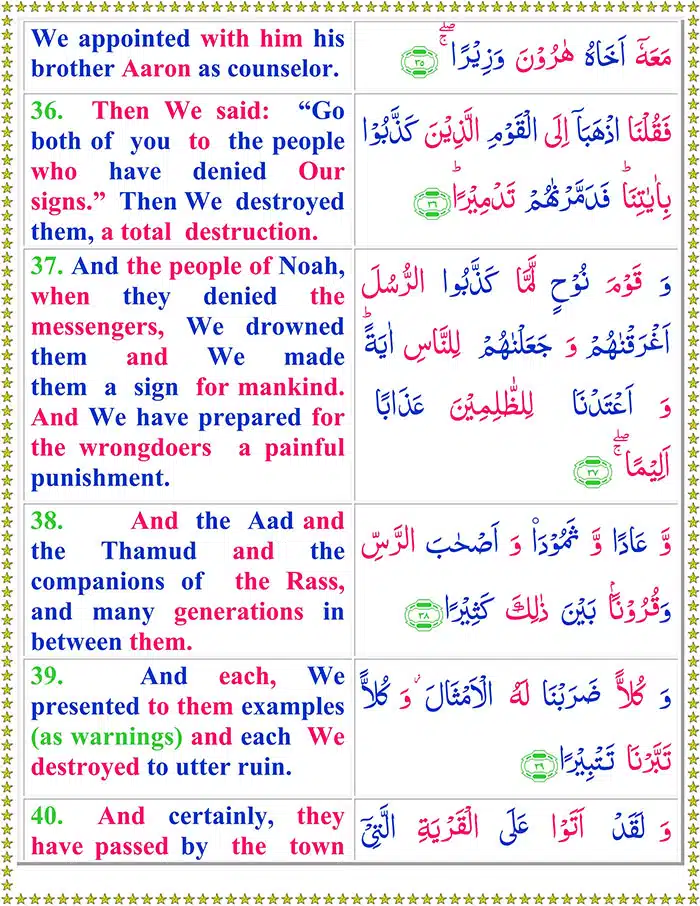 We appointed with him his
brother Aaron as counselor.
مَعَهٗۤ اَخَاهُ هٰرُوْنَ وَزِيْرًا ۚۖ ٣٥
36. Then We said: “Go
both of you to the people
who have denied Our
signs.” Then We destroyed
them, a total destruction.
فَقُلْنَا اذْهَبَاۤ اِلَى الْقَوْمِ الَّذِيْنَ كَذَّبُوْا
بِاٰيٰتِنَا ؕ فَدَمَّرْنٰهُمْ تَدْمِيْرًا ؕ ٣٦
37. And the people of Noah,
when they denied the
messengers, We drowned
them and We made
them a sign for mankind.
And We have prepared for
the wrongdoers a painful
punishment.
وَ قَوْمَ نُوْحٍ لَّمَّا كَذَّبُوا الرُّسُلَ
اَغْرَقْنٰهُمْ وَ جَعَلْنٰهُمْ لِلنَّاسِ اٰيَةً ؕ
وَ اَعْتَدْنَا لِلظّٰلِمِيْنَ عَذَابًا
اَلِيْمًا ۚۖ ٣٧
38. And the Aad and
the Thamud and the
companions of the Rass,
and many generations in
between them.
وَّ عَادًا وَّ ثَمُوْدَا۟ وَ اَصْحٰبَ الرَّسِّ
وَقُرُوْنًۢا بَيْنَ ذٰلِكَ كَثِيْرًا ٣٨
39. And each, We
presented to them examples
(as warnings) and each We
destroyed to utter ruin.
وَ كُلاًّ ضَرَبْنَا لَهُ الْاَمْثَالَ ؗ وَ كُلاًّ
تَبَّرْنَا تَتْبِيْرًا ٣٩
40. And certainly, they
have passed by the town
وَ لَقَدْ اَتَوْا عَلَى الْقَرْيَةِ الَّتِىْۤ